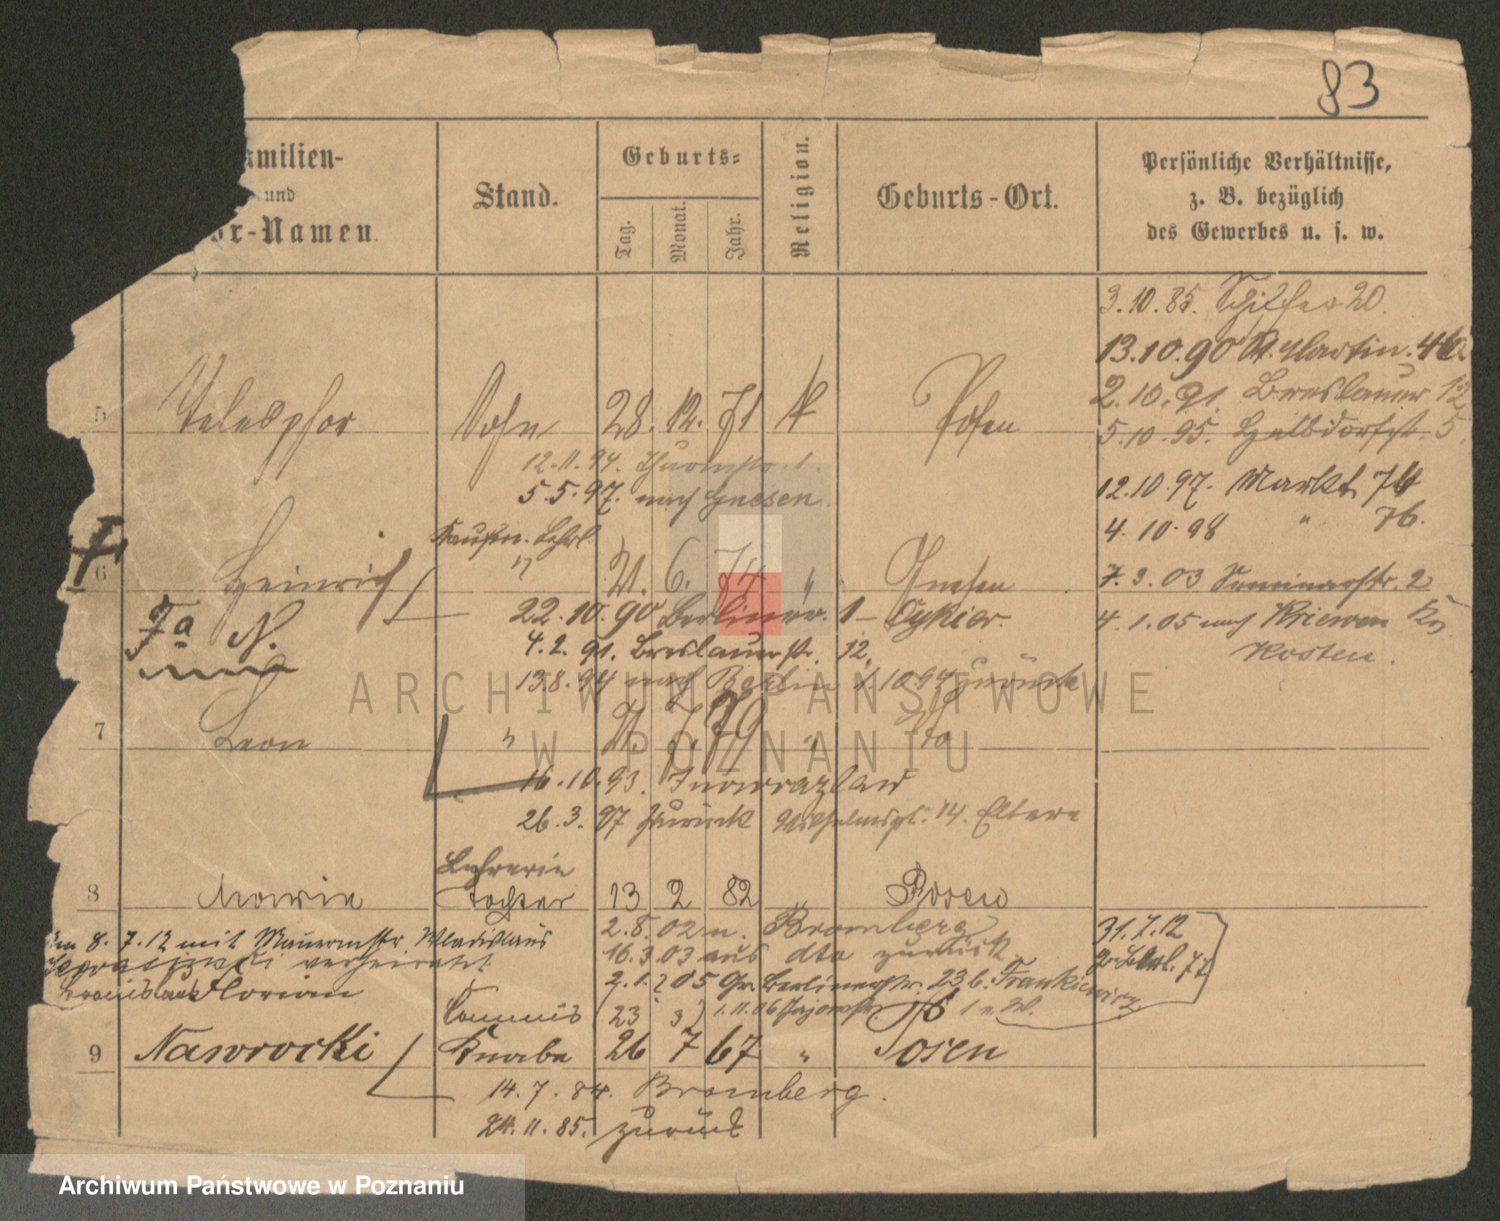 83
amilien-
und
or-Namen.
Stand.
Geburts-
Tag.
Monat.
Jahr.
Religion.
Geburts-Ort.
Persönliche Verhältnisse,
z. B. bezüglich
des Gewerbes u. s. w.
3.10.85. 20.
13.10.90 St. Martin. 46a
2.10.91. Breslauer 12
5 Telesphor Sohn 28. 12. 71 k Posen
5.10.95. Halbdorfst. 5.
12.11.94. Thurmstr. 1.
5.5.97. nach Gnesen.
12.10.97. Markt 76
4.10.98 " 76.
Kaufm. Lehrl.
6 Heinrich " 21. 6. 74 " Gnesen
7.3.03 Seminarstr. 2
22.10.90 Berliner. 1-
4.1.05 nach Kriewen Kr.
Kosten.
Fa N.
4.2.91. Breslauerstr. 12.
13.8.94 nach Berlin 1 10 94 zurück
7 Leon " 21. 79 " dto
16.10.93. Inowrazlaw
26.3.97 zurück Wilhelmspl. 14. Eltern
Lehrerin
8 Maria Tochter 13 2 82 " Posen
8.7.12 mit Maurermstr. Wladislaus
verheiratet
2.8.02 n. Bromberg
16.3.03 aus dto zurück
2.1.05 Gr. Berlinerstr. 23b. Frankiewicz
31.7.12
77
Bronislaus Florian
Commis (23 3) 1.11.06
9 Nawrocki Knabe 26 7 67 " Posen
14.7.84. Bromberg.
24.11.85. zurück
ARCHIWUM PAŃSTWOWE
W POZNANIU
Archiwum Państwowe w Poznaniu